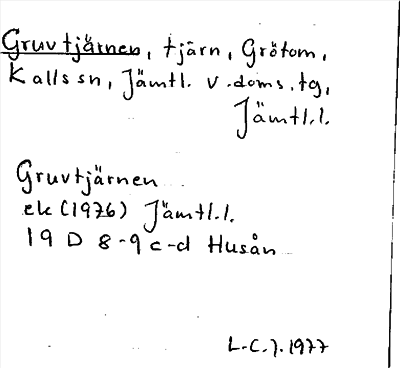 Gruvtjärnen, tjärn, Grötom,
Kalls sn, Jämtl. v. doms. tg,
Jämtl.l.
Gruvtjärnen
ek (1976) Jämtl.l.
19 D 8-9 c-d Husån
L.C.J. 1977